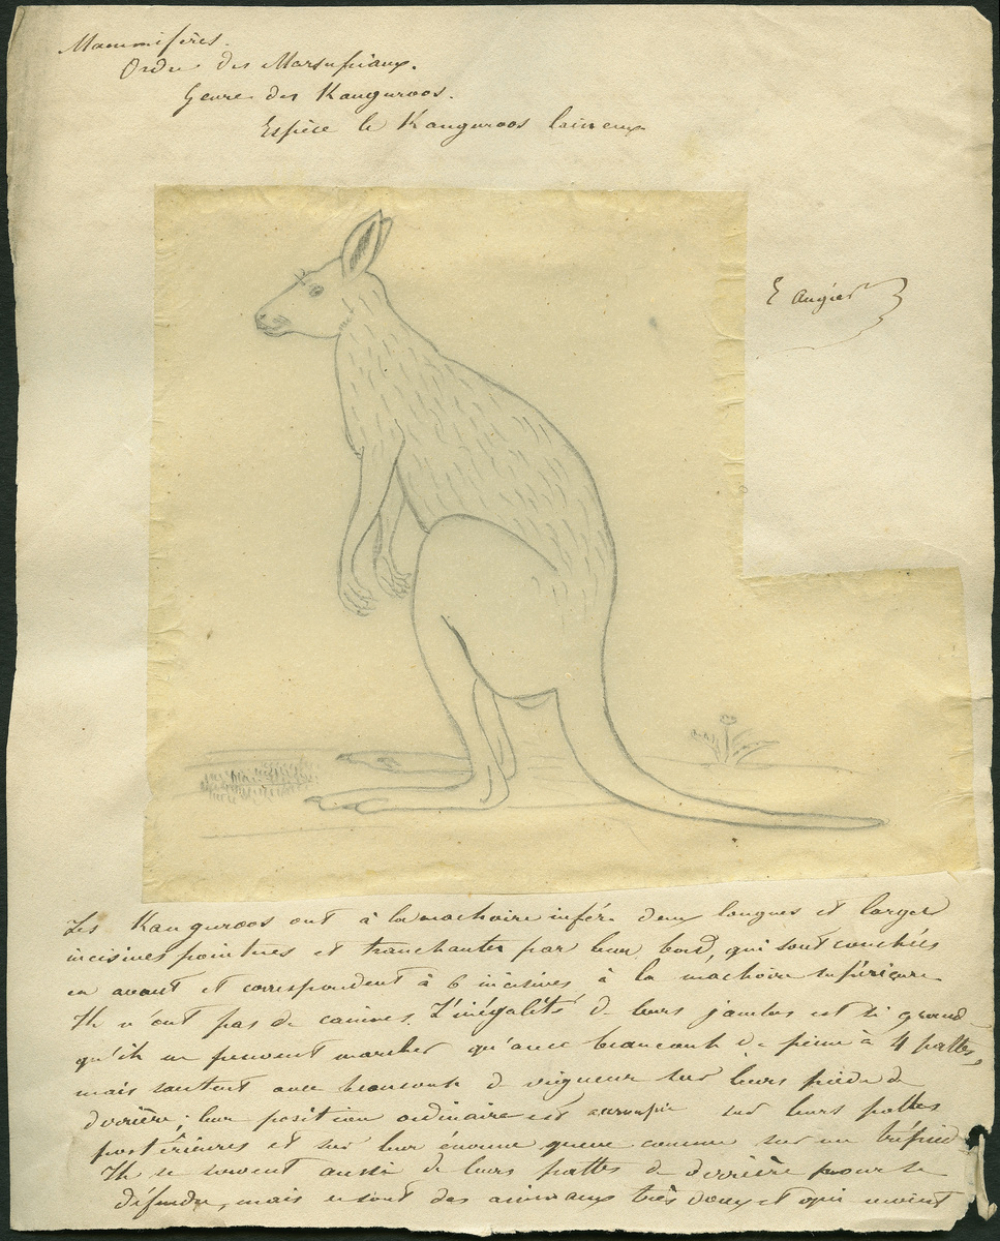 Mammifères.
Ordre des Marsupiaux.
Genre des Kanguroos.
Espèce le Kanguroos laineux
E Augier
Les Kanguroos ont à la machoire infér. deux longues et larges
incisives pointues et tranchantes par leur bord, qui sont couchées
en avant et correspondent à 6 incisives à la machoire supérieure
Ils n'ont pas de canines. L'inégalité de leurs jambes est si grand
qu'ils ne peuvent marcher qu'avec beaucoub de peine à 4 pattes,
mais sautent avec beaucoub de vigueur sur leurs pieds de
derrière; leur position ordinaire est accroupie sur leurs pattes
postérieures et sur leur énorme queue comme sur un trépied
Ils se servent aussi de leurs pattes de derrière pour se
défendre, mais ce sont des animaux très doux et qui vivent